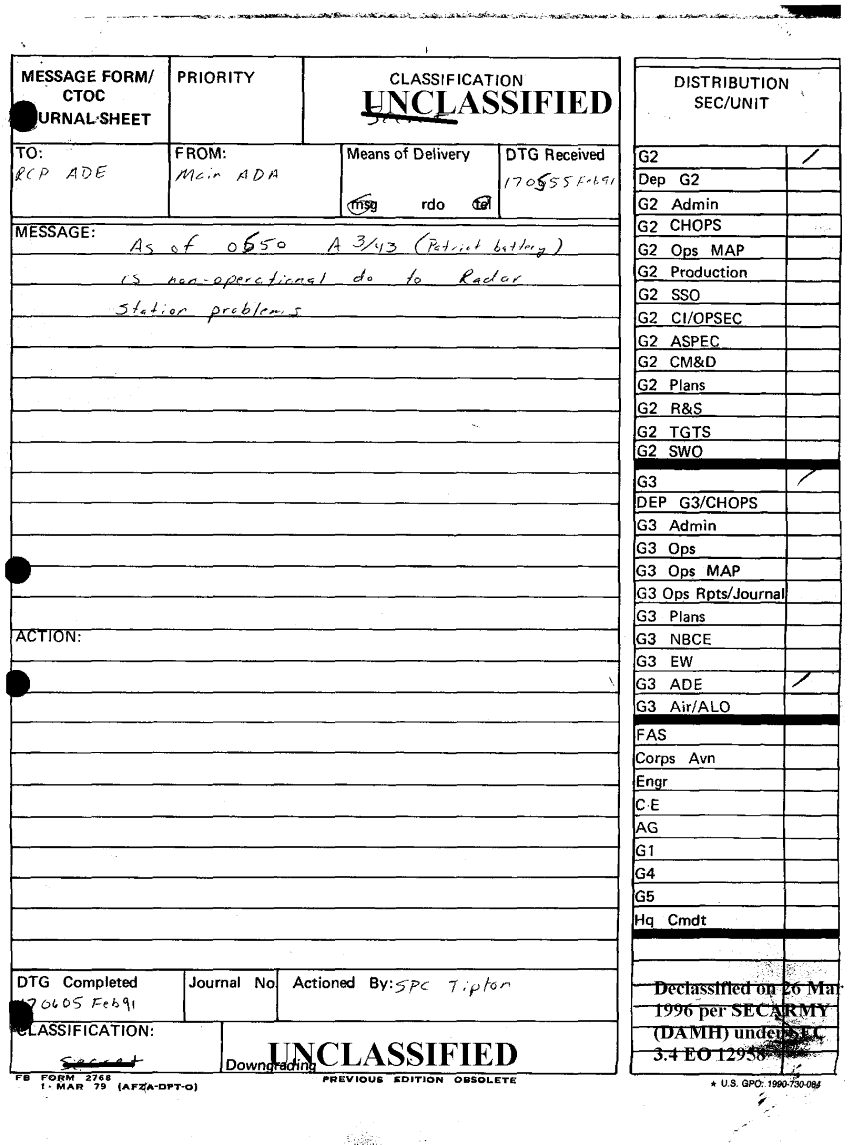 MESSAGE FORM/
CTOC
URNAL SHEET
PRIORITY
CLASSIFICATION
UNCLASSIFIED
Secret
TO:
RCP ADE
FROM:
Main ADA
Means of Delivery
msg rdo tel
DTG Received
170555 Feb91
MESSAGE:
As of 0550 A 3/43 (Patriot battery)
is non-operational do to Radar
Station problems
ACTION:
DTG Completed
170605 Feb91
Journal No.
Actioned By: SPC Tipton
CLASSIFICATION:
Secret
Downgrading
UNCLASSIFIED
FB FORM 2768
1 MAR 79 (AFZA-DPT-O)
PREVIOUS EDITION OBSOLETE
DISTRIBUTION
SEC/UNIT
G2
Dep G2
G2 Admin
G2 CHOPS
G2 Ops MAP
G2 Production
G2 SSO
G2 CI/OPSEC
G2 ASPEC
G2 CM&D
G2 Plans
G2 R&S
G2 TGTS
G2 SWO
G3
DEP G3/CHOPS
G3 Admin
G3 Ops
G3 Ops MAP
G3 Ops Rpts/Journal
G3 Plans
G3 NBCE
G3 EW
G3 ADE
G3 Air/ALO
FAS
Corps Avn
Engr
C-E
AG
G1
G4
G5
Hq Cmdt
Declassified on 26 Mar
1996 per SECARMY
(DAMH) under SEC
3.4 EO 12958
★ U.S. GPO: 1990-730-084